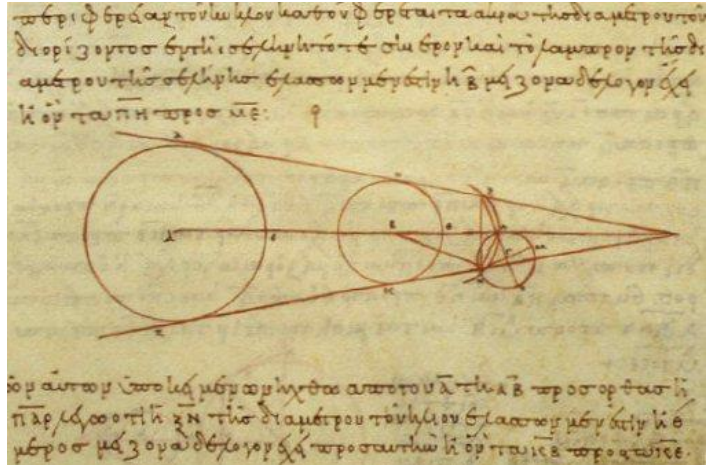 περιφέρειαν τὸν κύκλον καθ' ὃν φέρεται τὰ ἄκρα τῆς διαμέτρου τοῦ
διορίζοντος ἐν τῆι σελήνηι τό τε σκιερὸν καὶ τὸ λαμπρὸν τῆς δι
αμέτρου τῆς σελήνης ἐλάσσων μέν ἐστιν ἢ β̅ μείζονα δὲ λόγον ἔχει
ἢ ὃν τὰ π̅η̅ πρὸς μ̅ε̅:
τῶν αὐτῶν ὑποκειμένων ἤχθω ἀπὸ τοῦ α̅ τῆι α̅β̅ πρὸς ὀρθὰς ἡ
π̅α̅ρ̅ λέγω ὅτι ἡ ξ̅ν̅ τῆς διαμέτρου τοῦ ἡλίου ἐλάσσων μέν ἐστιν ἢ θ
μέρος μείζονα δὲ λόγον ἔχει πρὸς αὐτὴν ἢ ὃν τὰ κ̅β̅ πρὸς